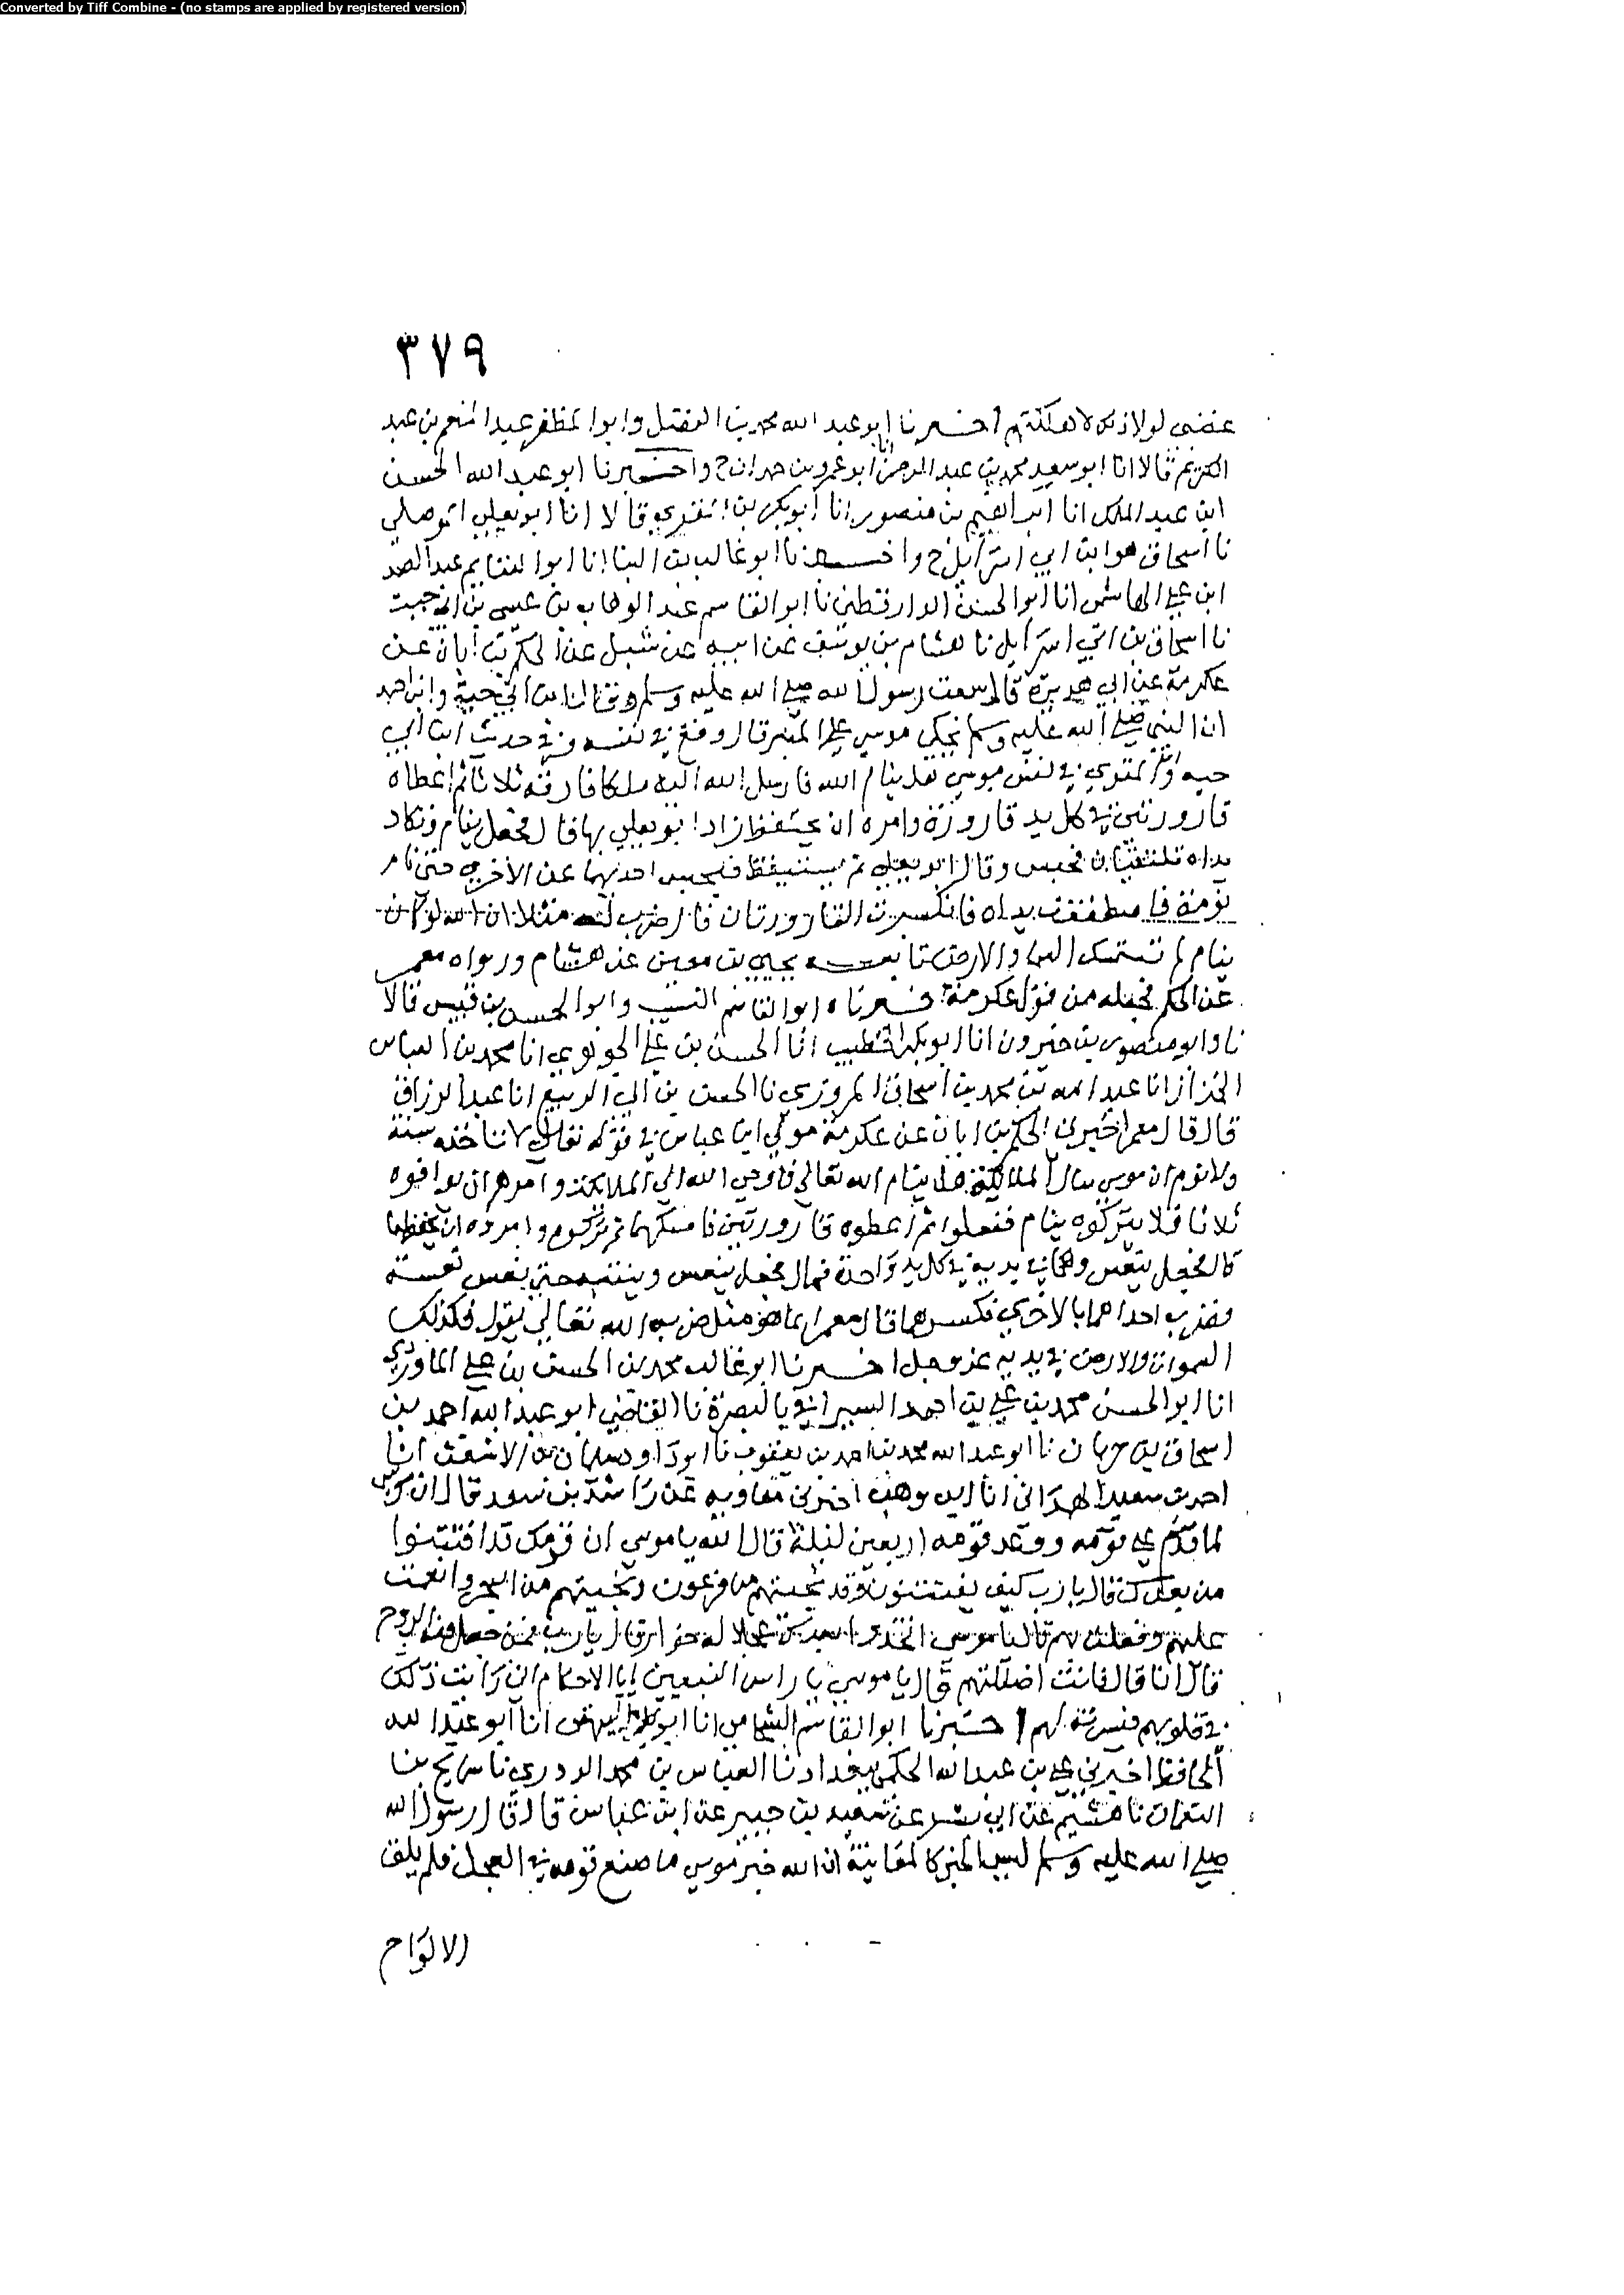 Converted by Tiff Combine - (no stamps are applied by registered version)
٣٧٩
غضبى لولا ذلك لاهلكتهم اخبرنا ابو عبد الله محمد بن الفضل وابوا لمظفر عبد المنعم بن عبد
الكريم قالا انا ابو سعيد محمد بن عبد الرحمن انا ابو عمرو بن حمدان ح واخبرنا ابو عبد الله الحسين
ابن عبد الملك انا ابراهيم بن منصور انا ابو بكر بن المقري قالا انا ابو يعلي الموصلي
نا اسحاق هو ابن ابي اسرايل ح واخبرنا ابو غالب بن البنا انا ابوا لغنايم عبد الصمد
ابن علي الهاشمي انا ابوا لحسن الدارقطني نا ابو القاسم عبد الوهاب بن عيسى بن ابي حية
نا اسحاق بن ابي اسرايل نا هشام بن يوسف عن امية عن شبل عن الحكم بن ابان عن
عكرمة عن ابي هريرة قال سمعت رسول الله صلي الله عليه وسلم وقال ابن ابي حية وابن احمد
ان النبي صلي الله عليه وسلم يحكي موسي علي المنبر قال وقع في نفسه وفي حديث ابن ابي
حية وقع في نفس موسي هل ينام الله فارسل الله اليه ملكا فارقه ثلاثا ثم اعطاه
قارورتين في كل يد قارورة وامره ان يحتفظ زاد ابو يعلي بها قال فجعل ينام وتكاد
يداه تلتقيان فحبس وقال ابو يعلي ثم يستيقظ فيحبس احديهما عن الاخري حتى نام
نومة فاصطفقت يداه فانكسرت القارورتان قال ضرب له مثلا ان الله لو كان
ينام لم تستمسك السما والارض تابعه يحيي بن معين عن هشام ورواه معمر
عن الحكم فجعله من قول عكرمة اخبرناه ابوا لقاسم النسيب وابوا لحسن بن قبيس قالا
نا وابو منصور بن خيرون انا ابو بكر الخطيب انا الحسن بن علي الجوهري انا محمد بن العباس
الخزاز انا عبد الله بن محمد بن اسحاق المروزي نا الحسن بن ابي الربيع انا عبد الرزاق
قال قال معمر اخبرني الحكم بن ابان عن عكرمة مولي ابن عباس في قوله تعالي لا تاخذه سنة
ولا نوم ان موسي سال الملائكة هل ينام الله تعالي فاوحي الله الي الملائكة وامرهم ان يوافوه
ثلاثا فلا يتركوه ينام ففعلوا ثم اعطوه قارورتين فامسكهما ثم تركوه وامروه ان يحفظهما
قال فجعل ينعس وهما في يديه في كل يد واحدة قال فجعل ينعس وينتبه حتى نعس نعسة
وضرب احداهما بالاخري فكسرهما قال معمر انما هو مثل ضربه الله تعالي يقول فكذلك
السموات والارض في يديه عز وجل اخبرنا ابو غالب محمد بن الحسن بن علي الماوردي
انا ابو الحسن محمد بن علي بن احمد السيرافي بالبصرة نا القاضي ابو عبد الله احمد بن
اسحاق بن خربان نا ابو عبد الله محمد بن احمد بن يعقوب نا ابو داود سليمان بن الاشعث انا
احمد بن سعيد الهمداني انا ابن وهب اخبرني معاوية عن راشد بن سعد قال ان موسي
لما قدم علي قومه وواعد قومه اربعين ليلة قال الله يا موسي ان قومك قد افتتنوا
من بعدك قال يا رب كيف يفتتنون وقد نجيتهم من فرعون ونجيتهم من البحر وانعمت
عليهم وفعلت بهم قال يا موسي اتخذوا من بعدك عجلا له خوار قال يا رب فمن جعل فيه الروح
قال انا قال فانت اضللتهم قال يا موسي يا راس النبيين يا ابا الاحكام اني رايت ذلك
في قلوبهم فيسرته لهم اخبرنا ابوا لقاسم الشحامي انا ابو بكر البيهقي انا ابو عبد الله
الحافظ اخبرني علي بن عبد الله الحكيمي ببغداد نا العباس بن محمد الدوري نا سريج بن
النعمان نا هشيم عن ابي بشر عن سعيد بن جبير عن ابن عباس قال قال رسول الله
صلي الله عليه وسلم ليس الخبر كالمعاينة ان الله خبر موسي ما صنع قومه في العجل فلم يلق
الالواح